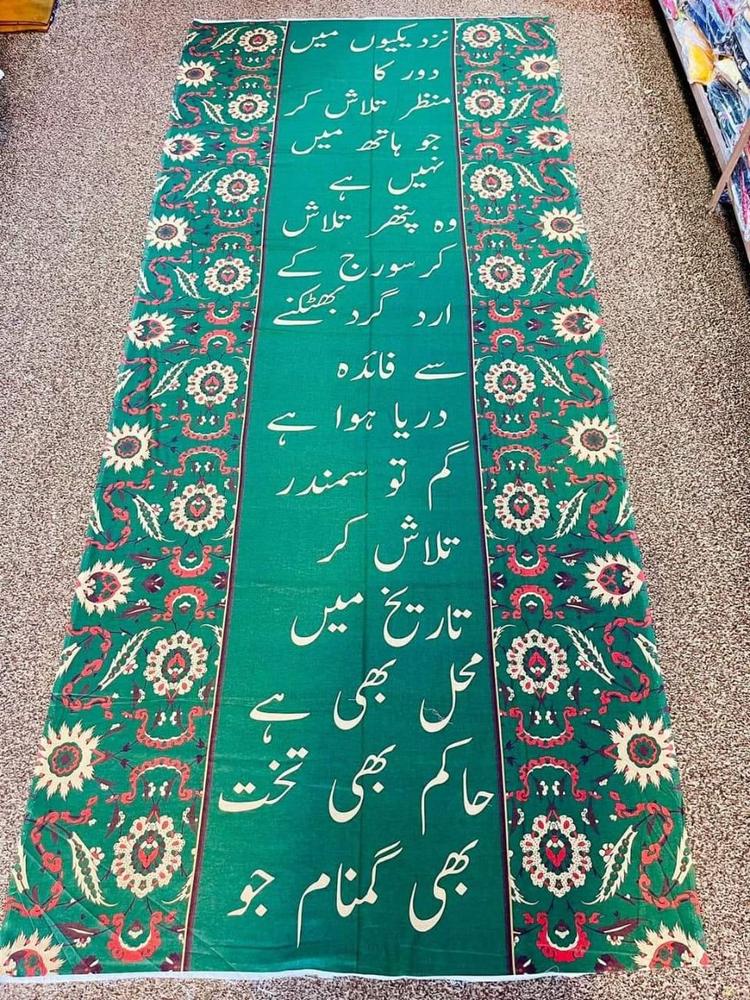 نزدیکیوں میں
دور کا
منظر تلاش کر
جو ہاتھ میں
نہیں ہے
وہ پتھر تلاش
کر سورج کے
ارد گرد بھٹکنے
سے فائدہ
دریا ہوا ہے
گم تو سمندر
تلاش کر
تاریخ میں
محل بھی ہے
حاکم بھی تخت
بھی گمنام جو